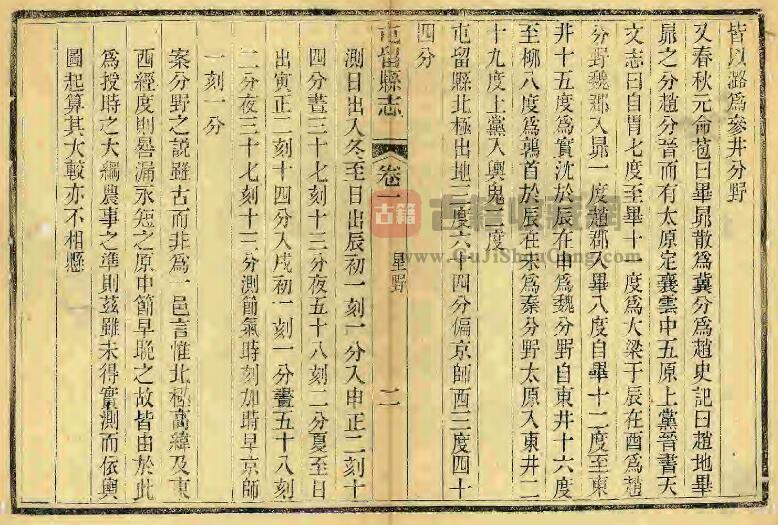 皆以潞爲參井分野
又春秋元命苞曰畢昴散爲冀分爲趙史記曰趙地畢
昴之分趙分晉而有太原定襄雲中五原上黨晉書天
文志曰自胃七度至畢十一度爲大梁于辰在酉爲趙
分野魏郡入昴一度趙郡入畢八度自畢十二度至東
井十五度爲實沈於辰在申爲魏分野自東井十六度
至柳八度爲鶉首於辰在未爲秦分野太原入東井二
十九度上黨入輿鬼二度
屯留縣北極出地三度六十四分偏京師西三度四十
四分
屯留縣志
卷一
星野
二
測日出入冬至日出辰初一刻一分入申正二刻十
四分晝三十七刻十三分夜五十八刻二分夏至日
出寅正二刻十四分入戌初一刻一分晝五十八刻
二分夜三十七刻十三分測節氣時刻加時早京師
一刻一分
案分野之說雖古而非爲一邑言惟北極高緯及東
西經度則晷漏永短之原中節早晚之故皆由於此
爲授時之大綱農事之準則茲雖未得實測而依輿
圖起算其大較亦不相懸
古籍
古籍收藏網
www.GuJiShouCang.com